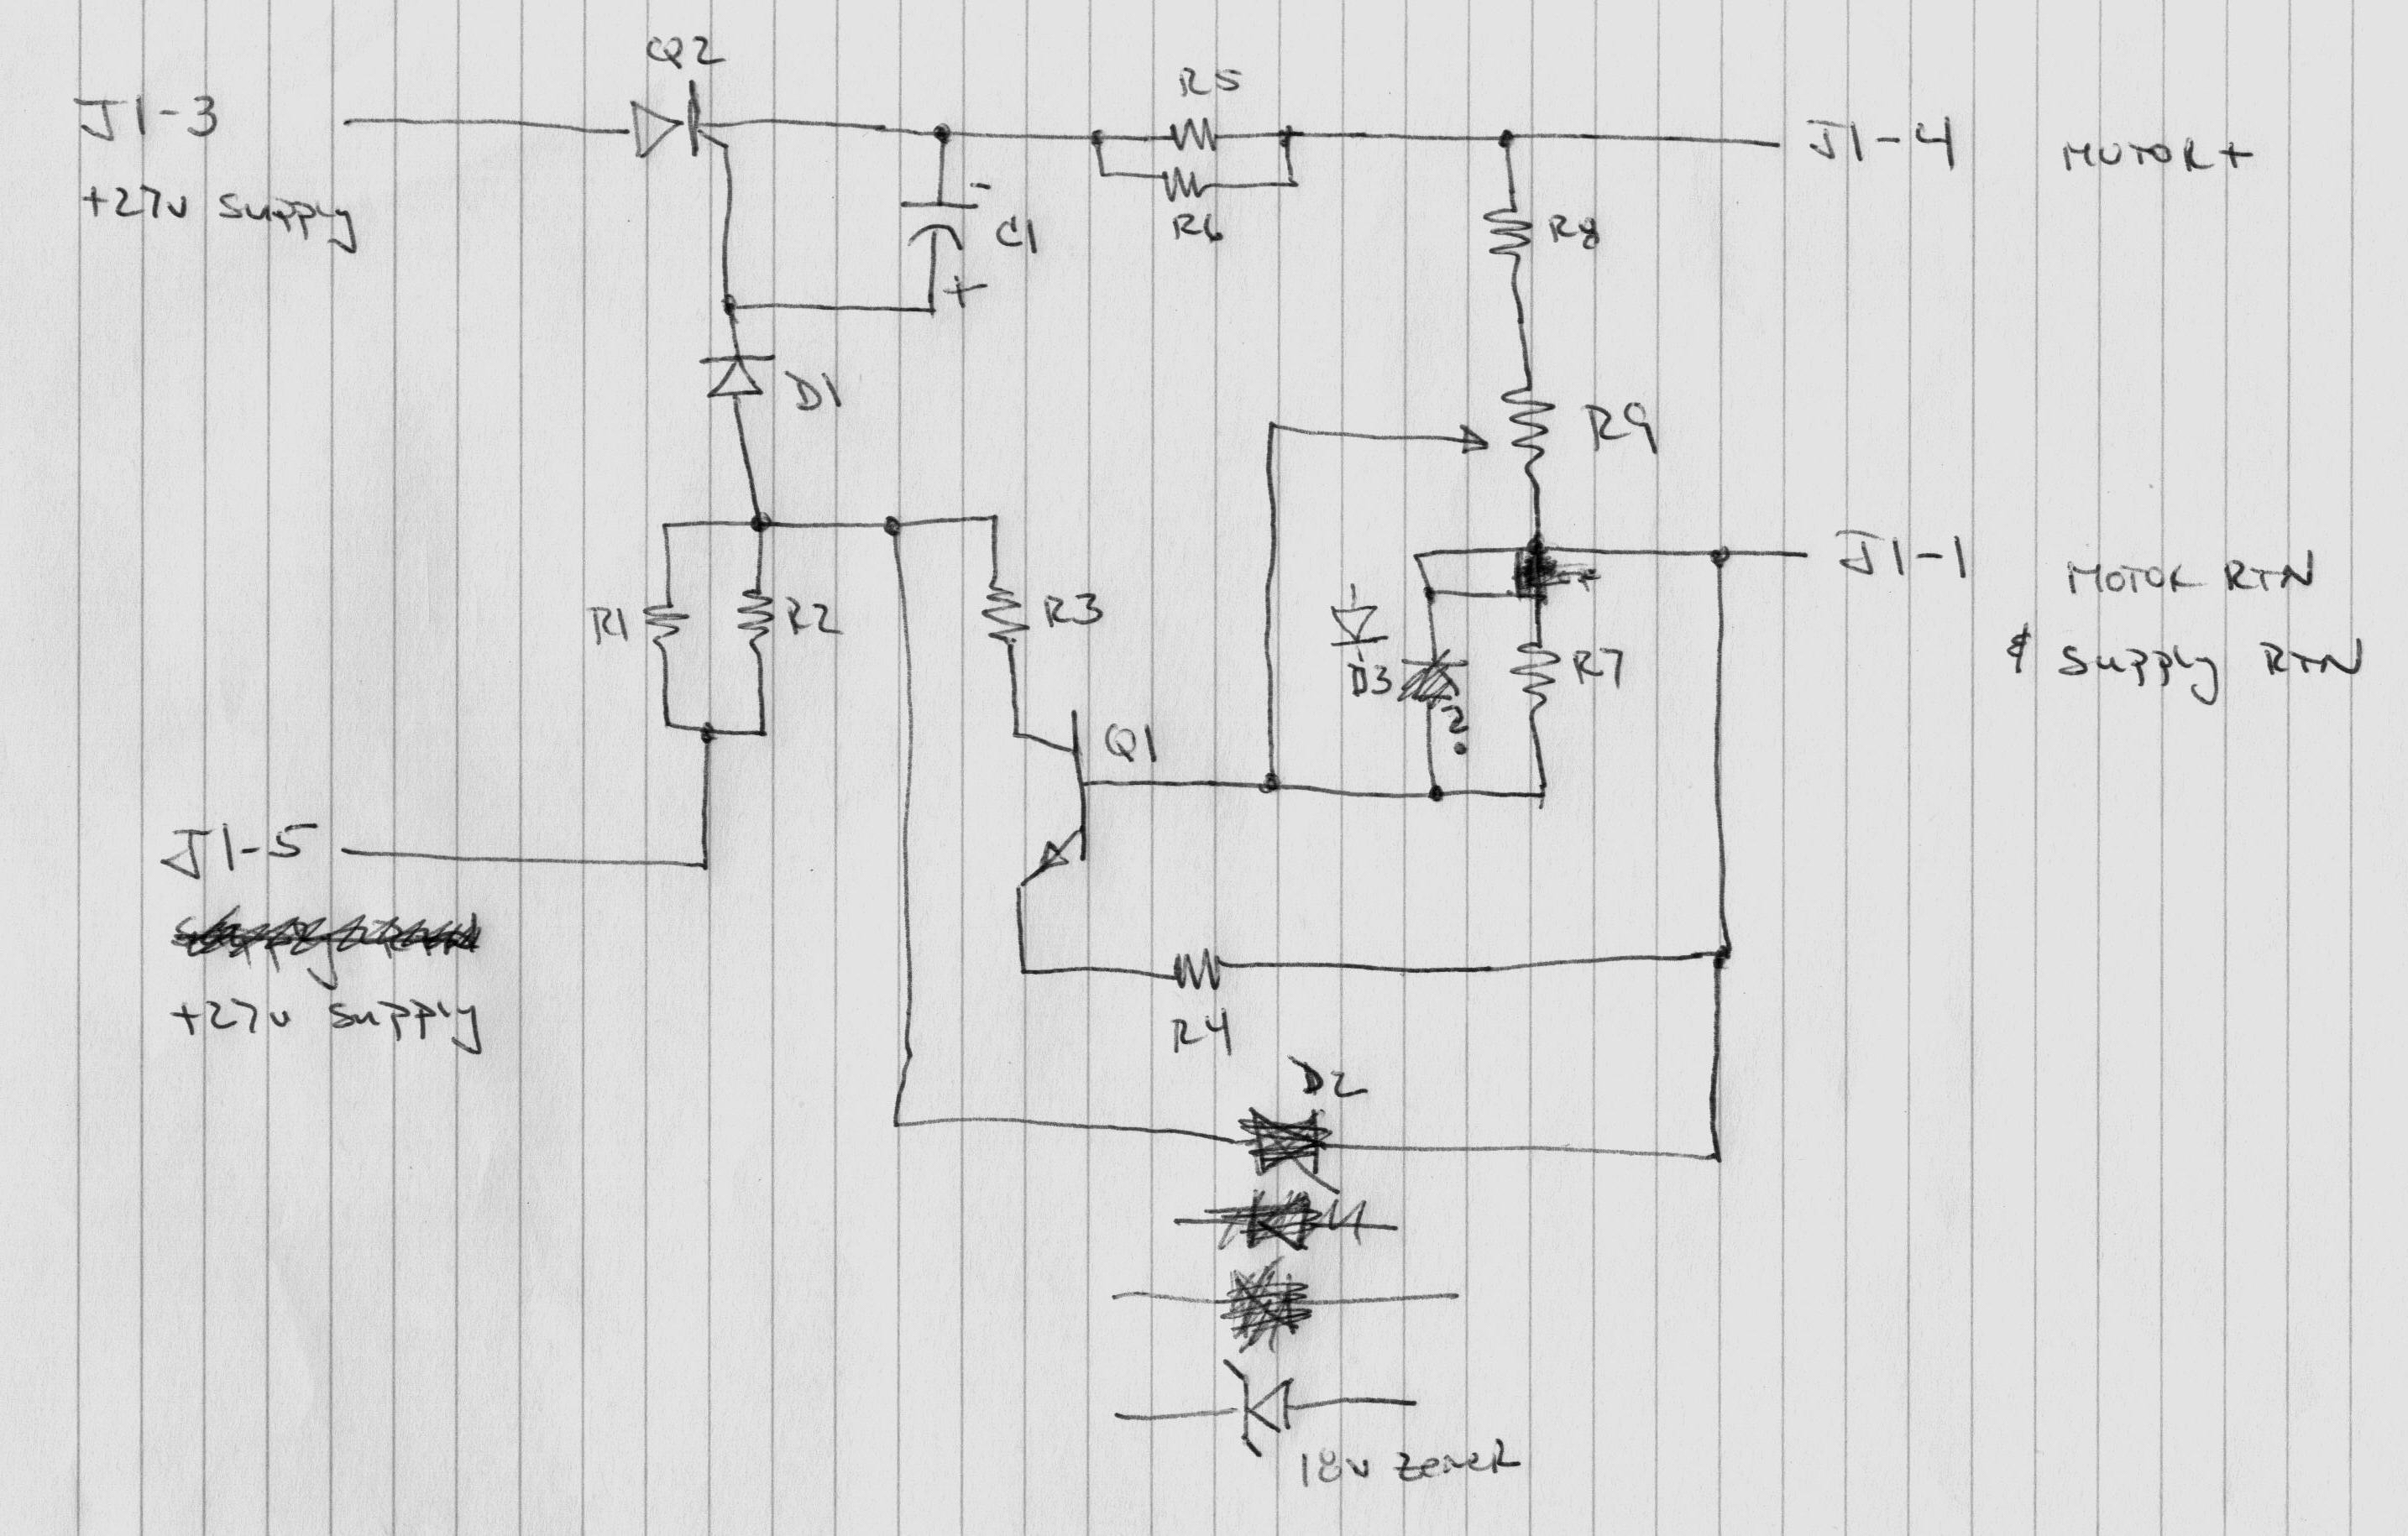 Q2
J1-3
+27v supply
R5
R6
C1
-
+
J1-4
MOTOR+
R8
D1
R9
J1-1
MOTOR RTN
& supply RTN
R1
R2
R3
D3
?
R7
Q1
J1-5
+27v supply
R4
D2
18v zener